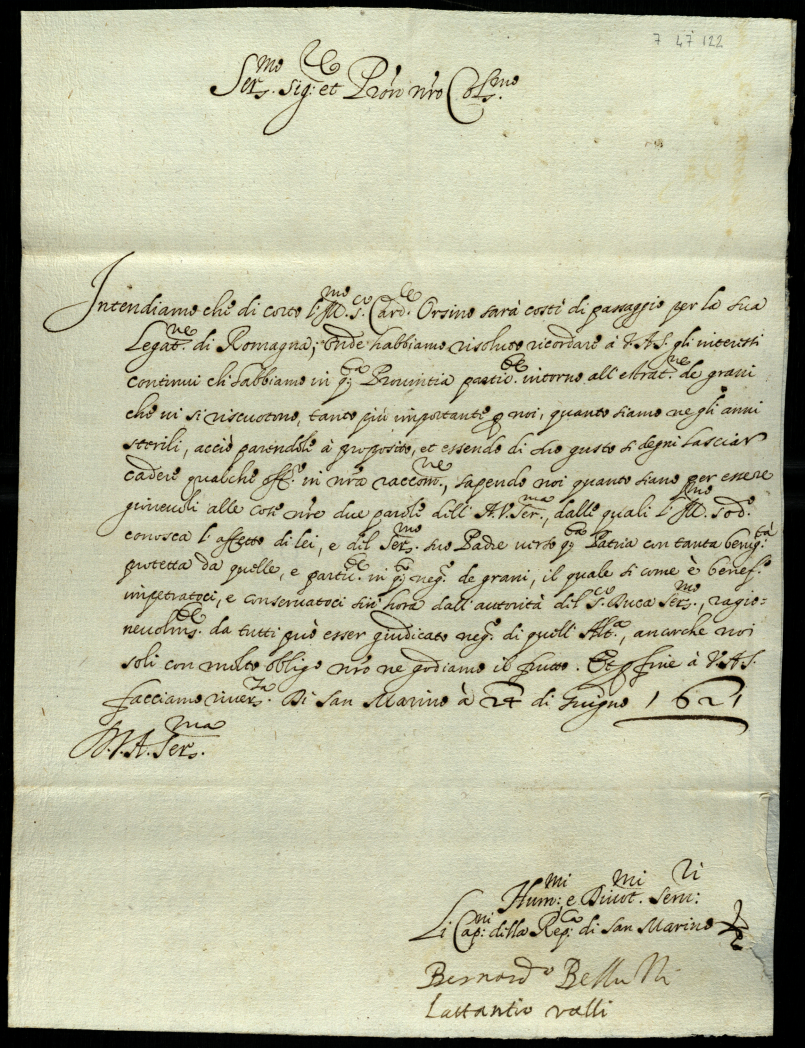 7 47 122
Ser.mo Sig.re et Pron nro Col.mo
Intendiamo che di corto l'Ill.mo S.r Card.le Orsino sarà costì di passaggio per la sua
Legat.ne di Romagna; onde habbiamo risoluto ricordare à V.A.S. gli interessi
continui ch'habbiamo in q.ta Prouintia partic.te intorno all'estrat.ne de grani
che ui si riscuotono, tanto più importanti p noi, quanto siamo ne gli anni
sterili, acciò parendole à proposito, et essendo di suo gusto si degni lasciar
cadere qualche off.o in nra raccom.ne, sapendo noi quanto siano per essere
gioueuoli alle cose nre due parole dell'A.V.Ser.ma, dalle quali l'Ill.mo sod.o
conosca l'affetto di lei, e del Ser.mo suo Padre uerso q.ta Patria con tanta benig.tà
protetta da quelle, e partic.te in q.o neg.o de grani, il quale si come è benef.o
impetratoci, e conseruatoci sin'hora dall'autorità del S.r Duca Ser.mo, ragio=
neuolm.te da tutti può esser giudicato neg.o di quell'Alt.a, ancorche noi
soli con molto obligo nro ne godiamo il frutto. Et p fine à V.A.S.
facciamo riuer.za. Di San Marino à 24 di Giugno 1621
D.V.A.Ser.ma
Hum.mi e Diuot.mi Seru.ri
Li Cap.ni della Rep.ca di San Marino
Bernardo Belluzzi
Lattantio Valli